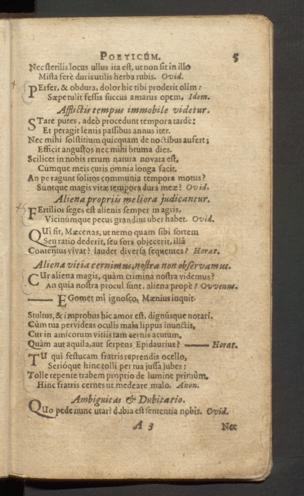 POETICUM. 5
Nec sterilis locus ullus ita est, ut non sit in illo
Mista ferè duris utilis herba rubis. Ovid.
PErfer, & obdura, dolor hic tibi proderit olim:
Sæpe tulit fessis succus amarus opem. Idem.
Afflictis tempus immobile videtur.
STare putes, adeò procedunt tempora tarde:
Et peragit lentis passibus annus iter.
Nec mihi solstitium quicquam de noctibus aufert;
Efficit angustos nec mihi bruma dies.
Scilicet in nobis rerum natura novata est,
Cumque meis curis omnia longa facit.
An peragunt solitos communia tempora motus?
Suntque magis vitæ tempora dura meæ? Ovid.
Aliena propriis meliora judicantur.
FErtilior seges est alienis semper in agris,
Vicinúmque pecus grandius uber habet. Ovid.
QUi fit, Mæcenas, ut nemo quam sibi sortem
Seu ratio dederit, seu fors objecerit, illâ
Contentus vivat? laudet diversa sequentes? Horat.
Aliena vitia cernimus, nostra non observamus.
CUr aliena magis, quàm crimina nostra videmus?
An quia nostra procul sunt, aliena prope? Ovvenus.
EGomet mî ignosco, Mænius inquit
Stultus, & improbus hic amor est, dignúsque notari.
Cùm tua pervideas oculis mala lippus inunctis,
Cur in amicorum vitiis tam cernis acutum,
Quàm aut aquila, aut serpens Epidaurius? Horat.
TU qui festucam fratris reprendis ocello,
Serióque hinc tolli per tua jussa jubes:
Tolle repente trabem proprio de lumine primùm,
Hinc fratris cernes ut medeare malo. Anon.
Ambiguitas & Dubitatio.
QUo pede nunc utar? dubia est sententia nobis. Ovid.
A 3 Nec